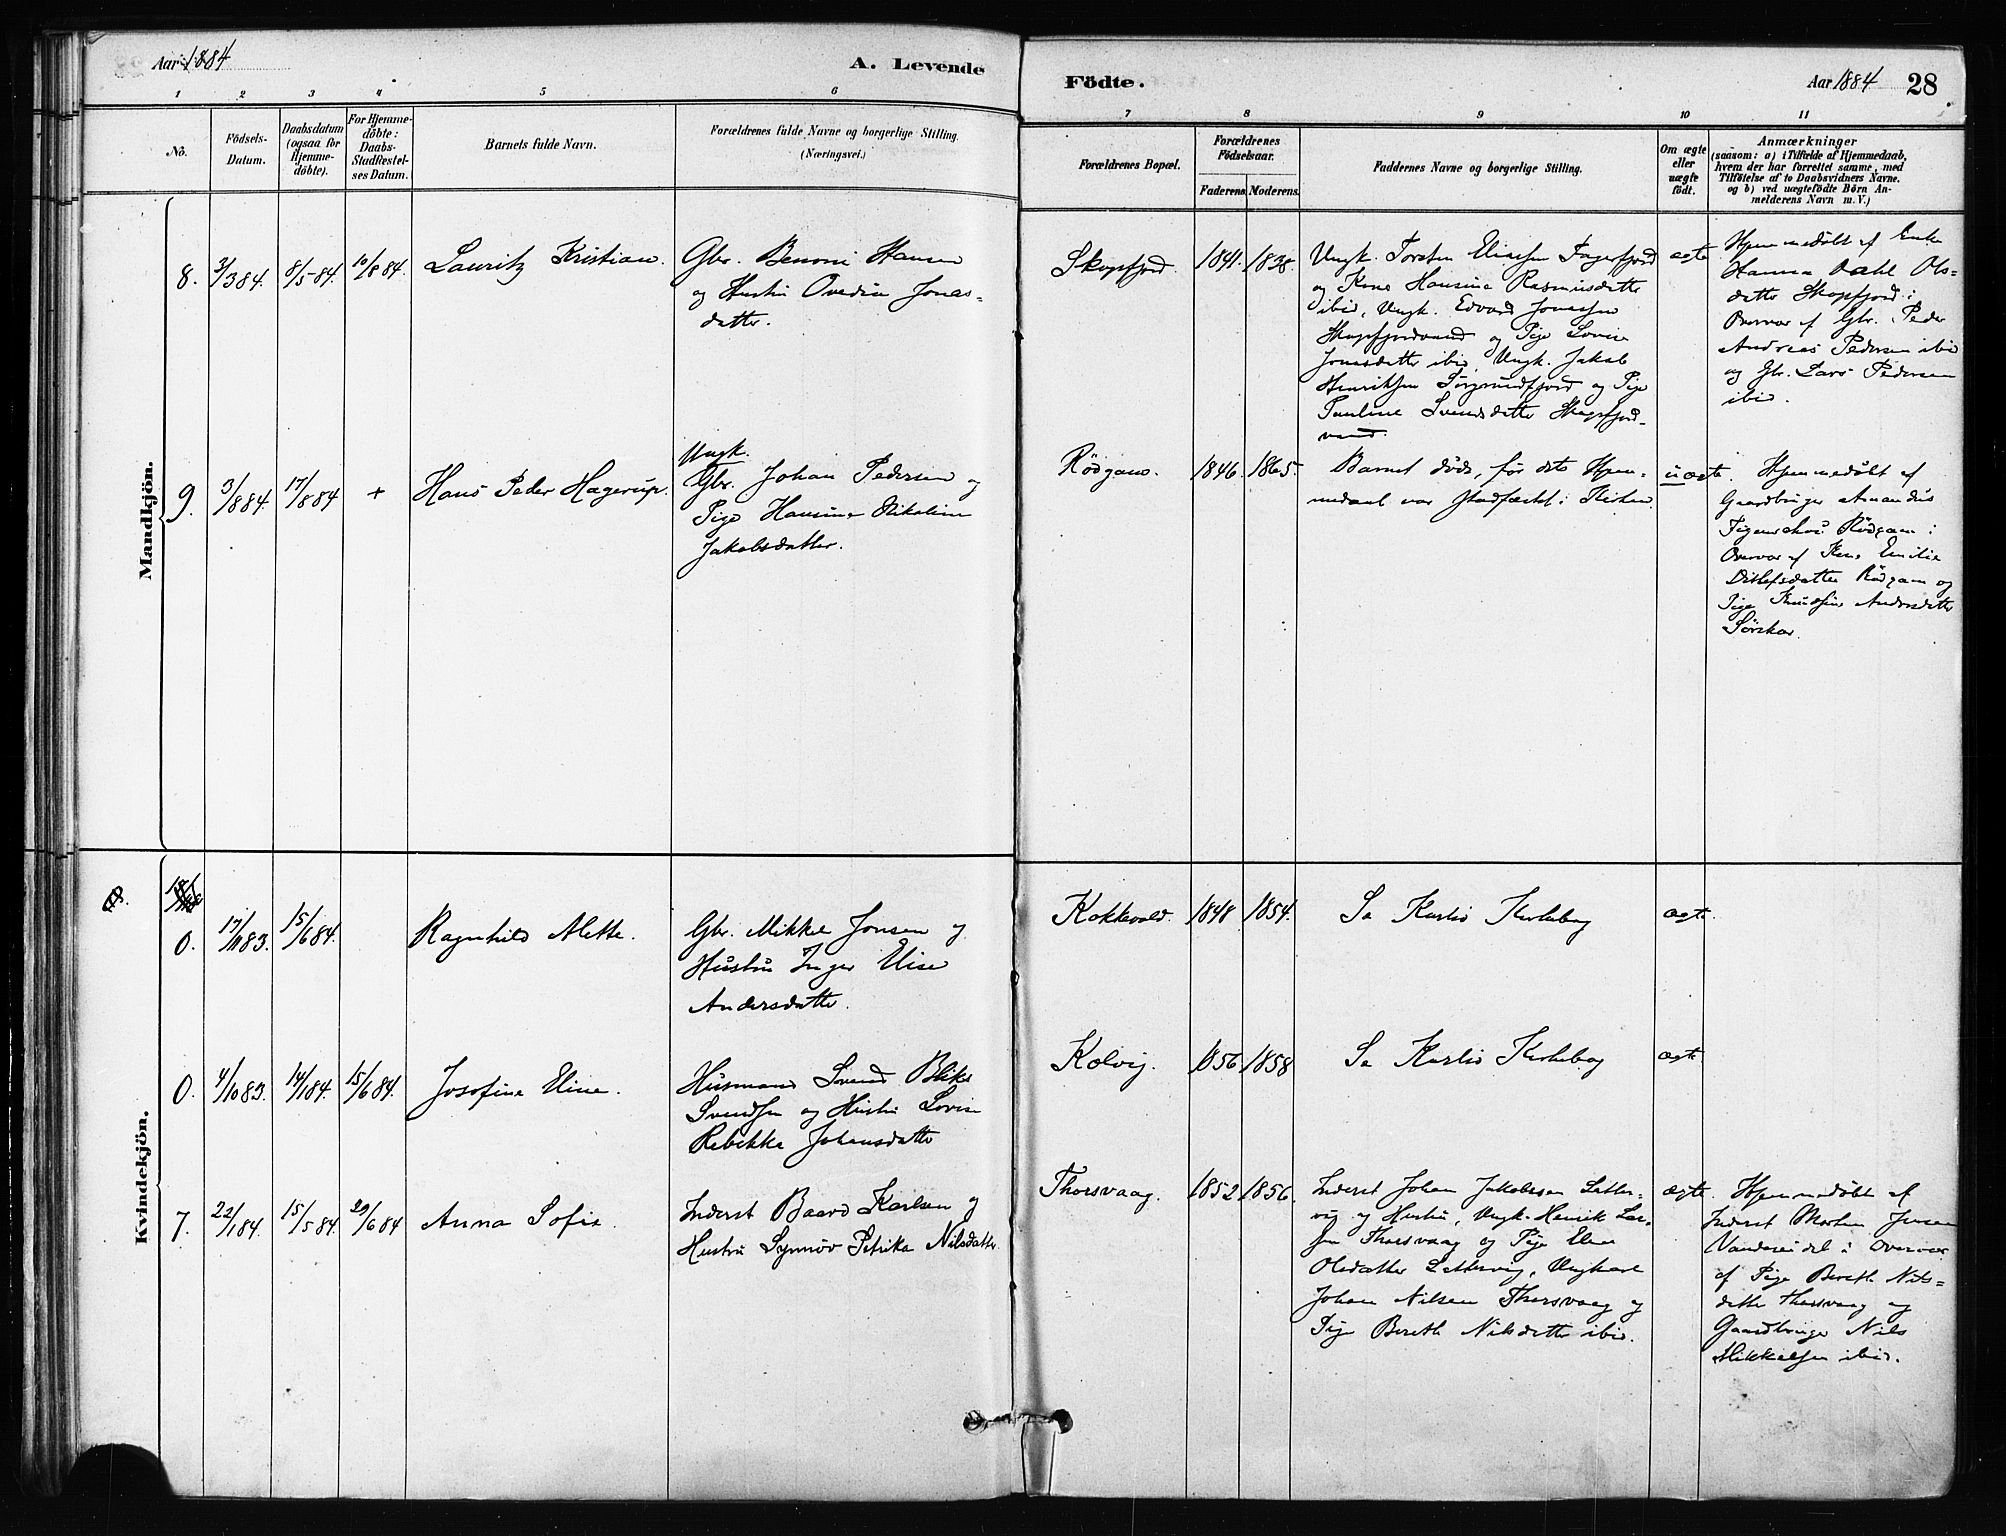 Aar 1884
A. Levende
1 2 3 4 5 6
No.
Födsels-
Datum.
Daabsdatum
(ogsaa for
Hjemme-
döbte).
For Hjemme-
döbte:
Daabs-
Stadfæstel-
ses Datum.
Barnets fulde Navn.
Forældrenes fulde Navne og borgerlige Stilling.
(Næringsvei.)
Mandkjön.
8. 3/3 84. 8/5 84. 10/8 84. Lauritz Kristian.
Gbr. Benoni Hansen
og Hustru Ovedia Jonas-
datter.
9. 3/8 84. 17/8 84 + Hans Peder Hagerup.
Ungk.
Gbr. Johan Pedersen og
Pige Hansine Nikoline
Jakobsdatter.
Kvindekjön.
0. 17/11 83. 15/6 84. Ragnhild Alette.
Gbr. Mikkel Jonsen og
Hustru Inger Elise
Andersdatter.
0. 4/10 83. 14/1 84. 15/6 84. Josefine Eline.
Husmand Svend Blik
Svendsen og Hustru Lovise
Rebekka Johansdatter
7. 22/1 84. 15/5 84 29/6 84 Anna Sofie.
Inderst Baard Karlsen og
Hustru Synnöv Petrika Nilsdatter.
Födte.
Aar 1884
28
7 8 9 10 11
Forældrenes Bopæl.
Forældrenes
Födselsaar.
Faderens. Moderens.
Faddernes Navne og borgerlige Stilling.
Om ægte
eller
uægte
födt.
Anmærkninger
(saasom: a) i Tilfælde af Hjemmedaab,
hvem der har forrettet samme, med
Tilföielse af to Daabsvidners Navne.
og b) ved uægtefödte Börn An-
melderens Navn m. V.)
Skopfjord. 1841. 1838.
Ungk. Torsten Eliassen Fagerfjord
og Kone Hansine Rasmusdatter
ibid, Ungk. Edvard Jonassen
Skopfjordvand og Pige Lovise
Jonasdatter ibid, Ungk. Jakob
Henriksen Sörgrundfjord og Pige
Pauline Svendsdatter Skopfjord-
vand.
ægte
Hjemmedöbt af Enke
Hanna Dahl Ols-
datter Skopfjord i
Overvær af Gbr. Peder
Andreas Pedersen ibid
og Gbr. Lars Pedersen
ibid.
Rödgam. 1846. 1865.
Barnet döde, för dets Hjem-
medaab var stadfæstet i Kirken.
uægte.
Hjemmedöbt af
Gaardbruger Amandus
Figenschou Rödgam i
Overvær af Kone Emilie
Ditlefsdatter Rödgam og
Pige Knudsine Andersdatter
Sörskar.
Kokkevold. 1848 1854.
Se Karlsö Kirkebog
ægte.
Kolvig. 1856 1858
Se Karlsö Kirkebog
ægte
Thorsvaag. 1852 1856.
Inderst Johan Jakobsen Latter-
vig og Hustru, Ungk. Henrik Lar-
sen Thorsvaag og Pige Elen
Olsdatter Lattervig, Ungkarl
Johan Nilsen Thorsvaag og
Pige Bereth Nilsdatter ibid.
ægte.
Hjemmedöbt af
Inderst Morten Jensen
Vandareidet i Overvær
af Pige Bereth Nils-
datter Thorsvaag og
Gaardbruger Nils
Mikkelsen ibid.